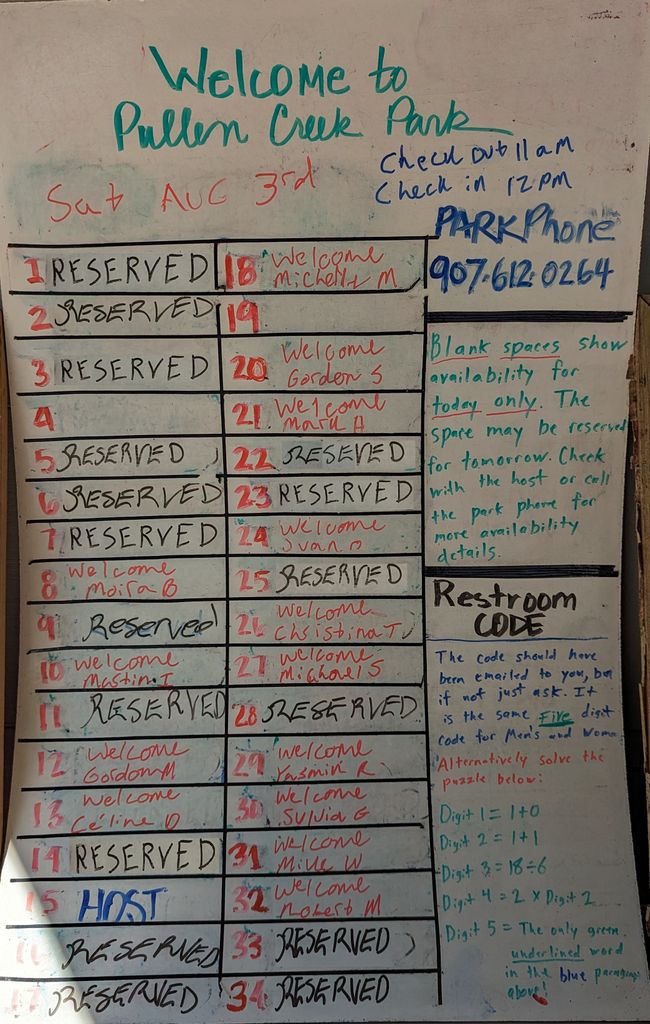 Welcome to
Pullen Creek Park
Check out 11 am
Check in 12 pm
Sat AUG 3rd
PARK Phone
907.612.0264
1 RESERVED
2 RESERVED
3 RESERVED
4
5 RESERVED
6 RESERVED
7 RESERVED
8 Welcome
Moira B
9 Reserved
10 Welcome
I
11 RESERVED
12 Welcome
Gordon M
13 Welcome
Céline D
14 RESERVED
15 HOST
16 RESERVED
17 RESERVED
18 Welcome
Michelle M
19
20 Welcome
Gordon S
21 Welcome
Mark A
22 RESEVED
23 RESERVED
24 Welcome
25 RESERVED
26 Welcome
Christina T
27 Welcome
Michael S
28 RESERVED
29 Welcome
Yasmin R
30 Welcome
Sylvia G
31 Welcome
Mike W
32 Welcome
Robert M
33 RESERVED
34 RESERVED
Blank spaces show
availability for
today only. The
space may be reserved
for tomorrow. Check
with the host or call
the park phone for
more availability
details.
Restroom
CODE
The code should have
been emailed to you, but
if not just ask. It
is the same Five digit
code for Men's and
Alternatively solve the
puzzle below:
Digit 1 = 1+0
Digit 2 = 1+1
Digit 3 = 18÷6
Digit 4 = 2 x Digit 2
Digit 5 = The only green
underlined word
in the blue paragraph
above!